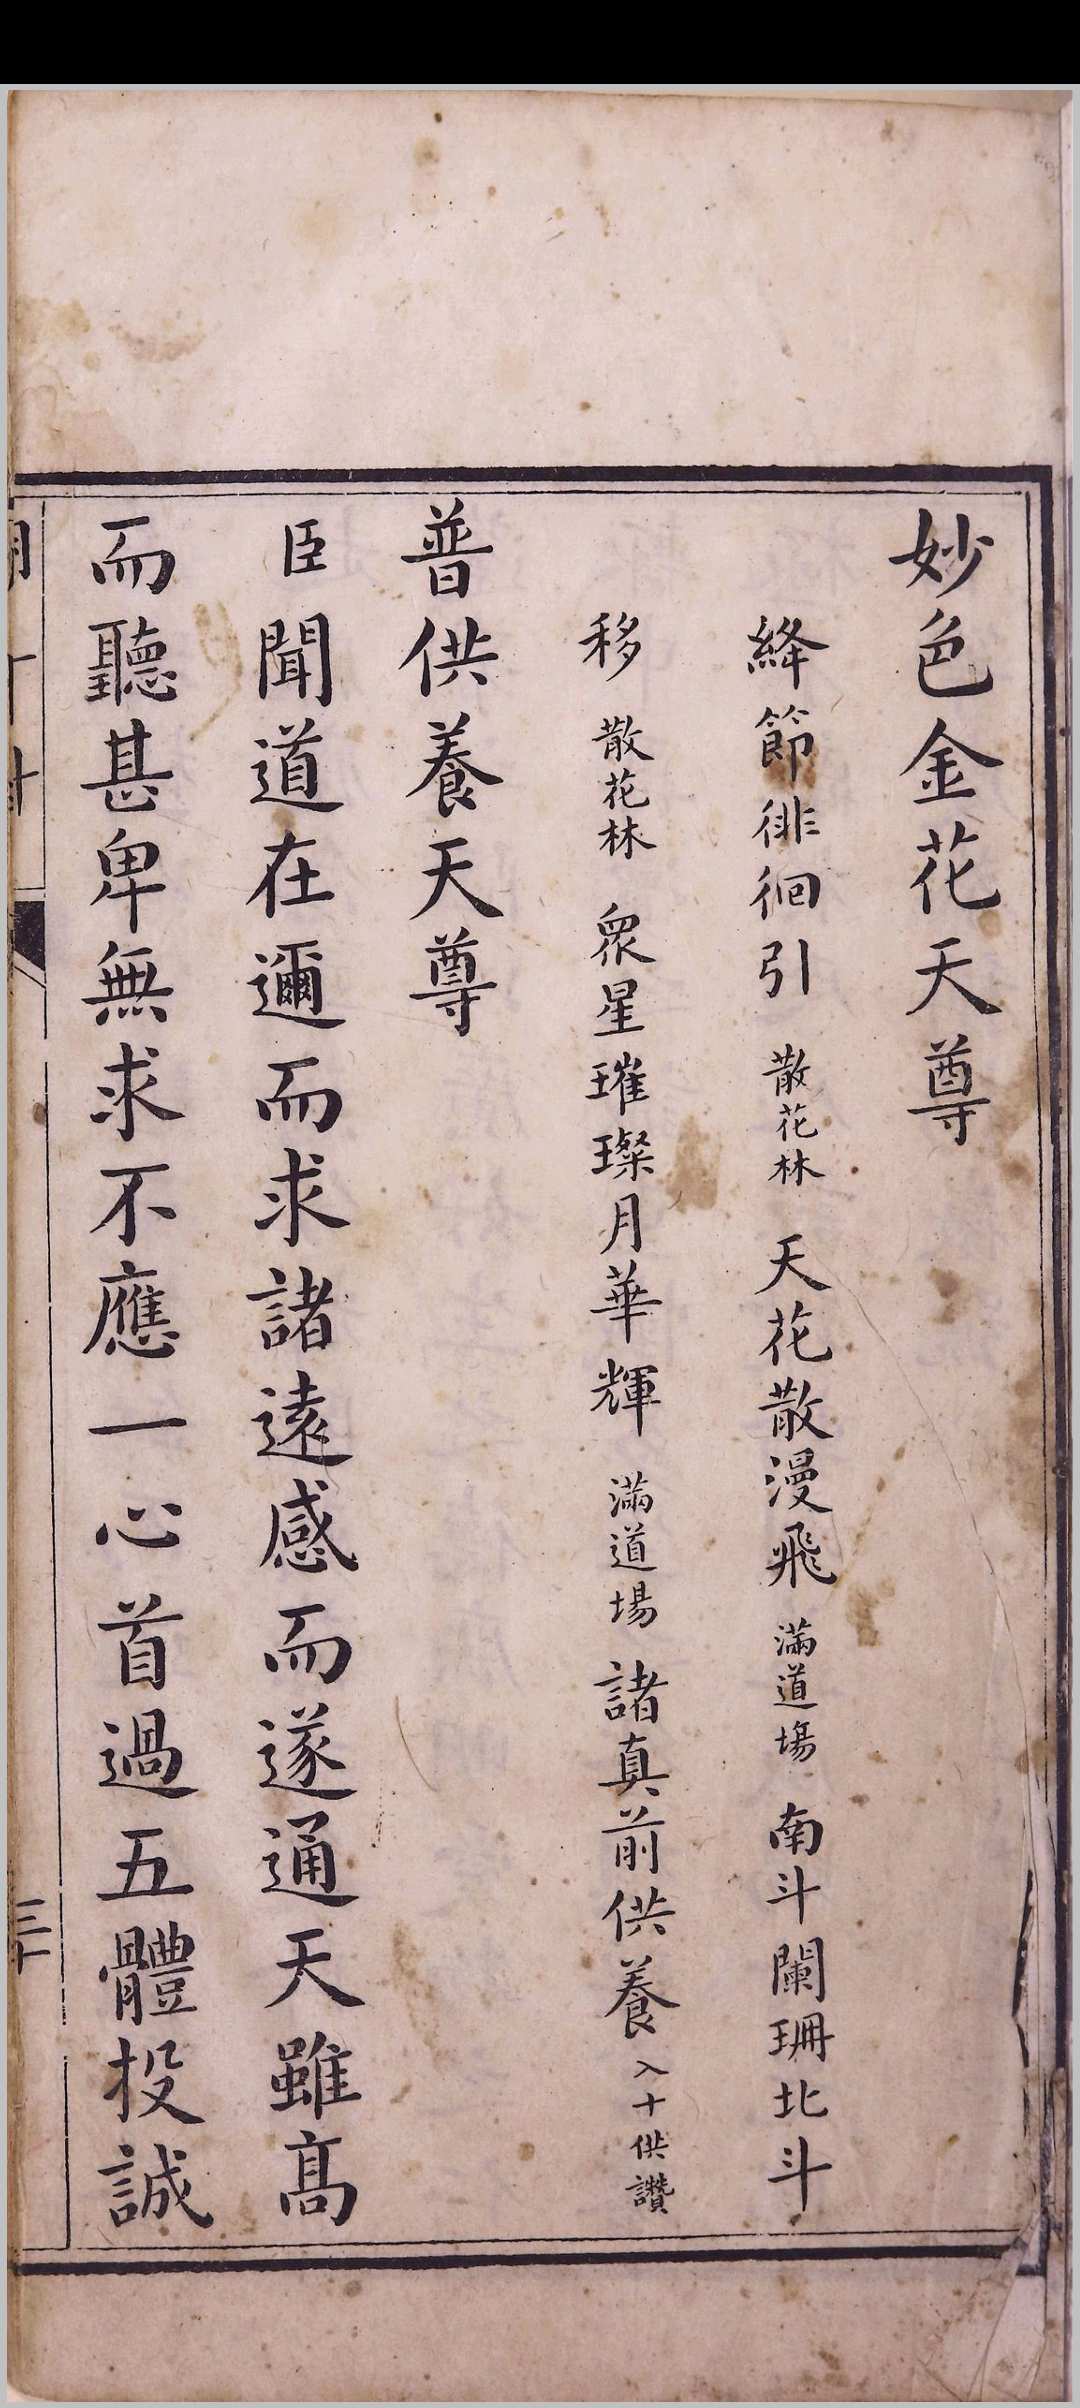 妙色金花天尊
絳節徘徊引 散花林 天花散漫飛 滿道場 南斗闌珊北斗
移 散花林 眾星璀璨月華輝 滿道場 諸真前供養 入十供讚
普供養天尊
臣聞道在邇而求諸遠感而遂通天雖高
而聽甚卑無求不應一心首過五體投誠
三十